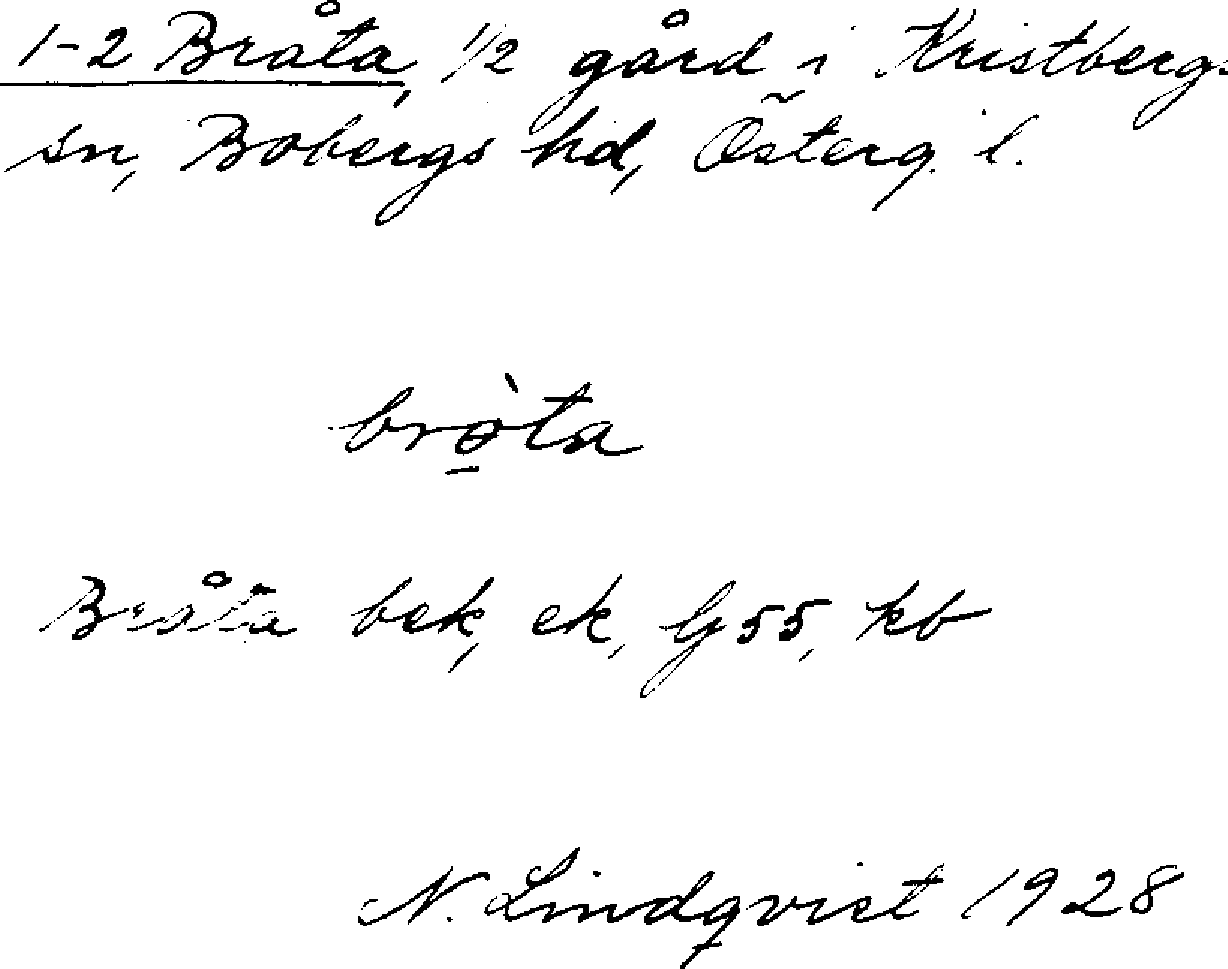 1-2 Bråta, 1/2 gård i Kristbergs
sn, Bobergs hd, Österg. l.
brò̱ta
Bråta bek, ek, G55, kb
N. Lindqvist 1928